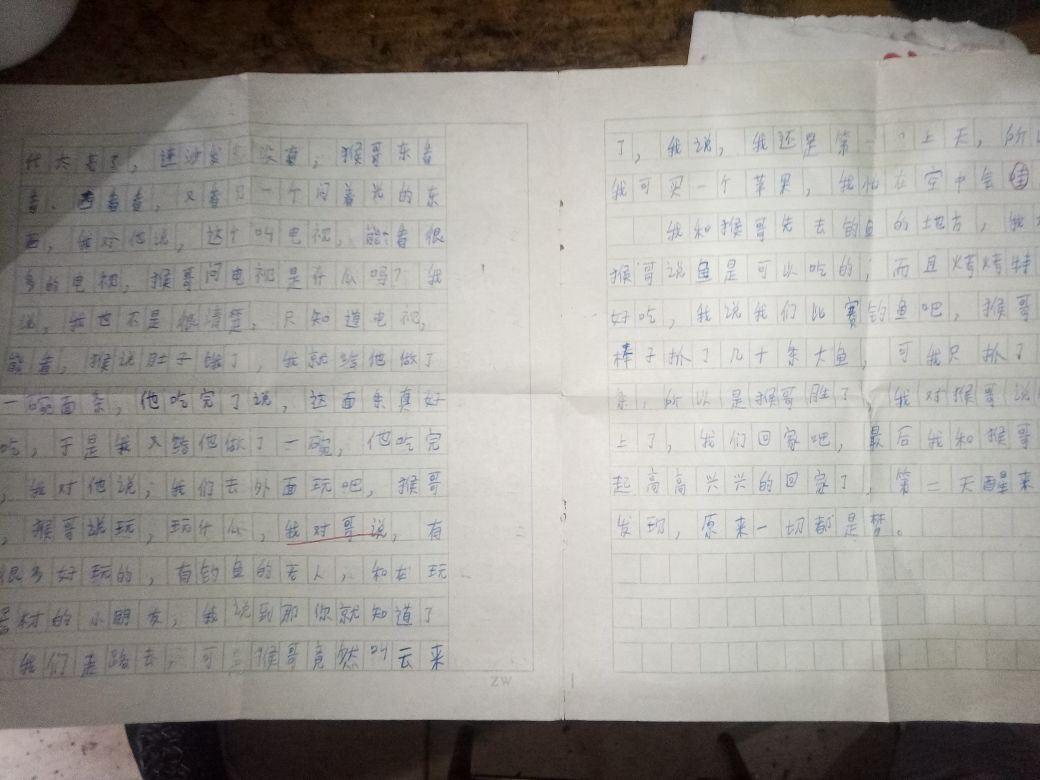 代太奇了，连沙发都没有，猴哥东看
看、西看看，又看见一个闪着光的东
西，我对他说，这个叫电视，能看很
多的电视，猴哥问电视是什么吗？我
说，我也不是很清楚，只知道电视，
能看，猴说肚子饿了，我就给他做了
一碗面条，他吃完了说，这面条真好
吃，于是我又给他做了一碗，他吃完
，我对他说；我们去外面玩吧，猴哥
，猴哥说玩，玩什么，我对哥说，有
很多好玩的，有钓鱼的老人，和在玩
材的小朋友，我说到那你就知道了
我们走路去，可猴哥竟然叫云来
了，我说，我还是第一上天，所
我可买一个苹果，我怕在空中会
我和猴哥先去钓鱼的地方，我
猴哥说鱼是可以吃的；而且烤烤特
好吃，我说我们比赛钓鱼吧，猴哥
棒子扒了几十条大鱼，可我只扒了
条，所以是猴哥胜了，我对猴哥说
上了，我们回家吧，最后我和猴哥
起高高兴兴的回家了，第二天醒来
发现，原来一切都是梦。
ZW